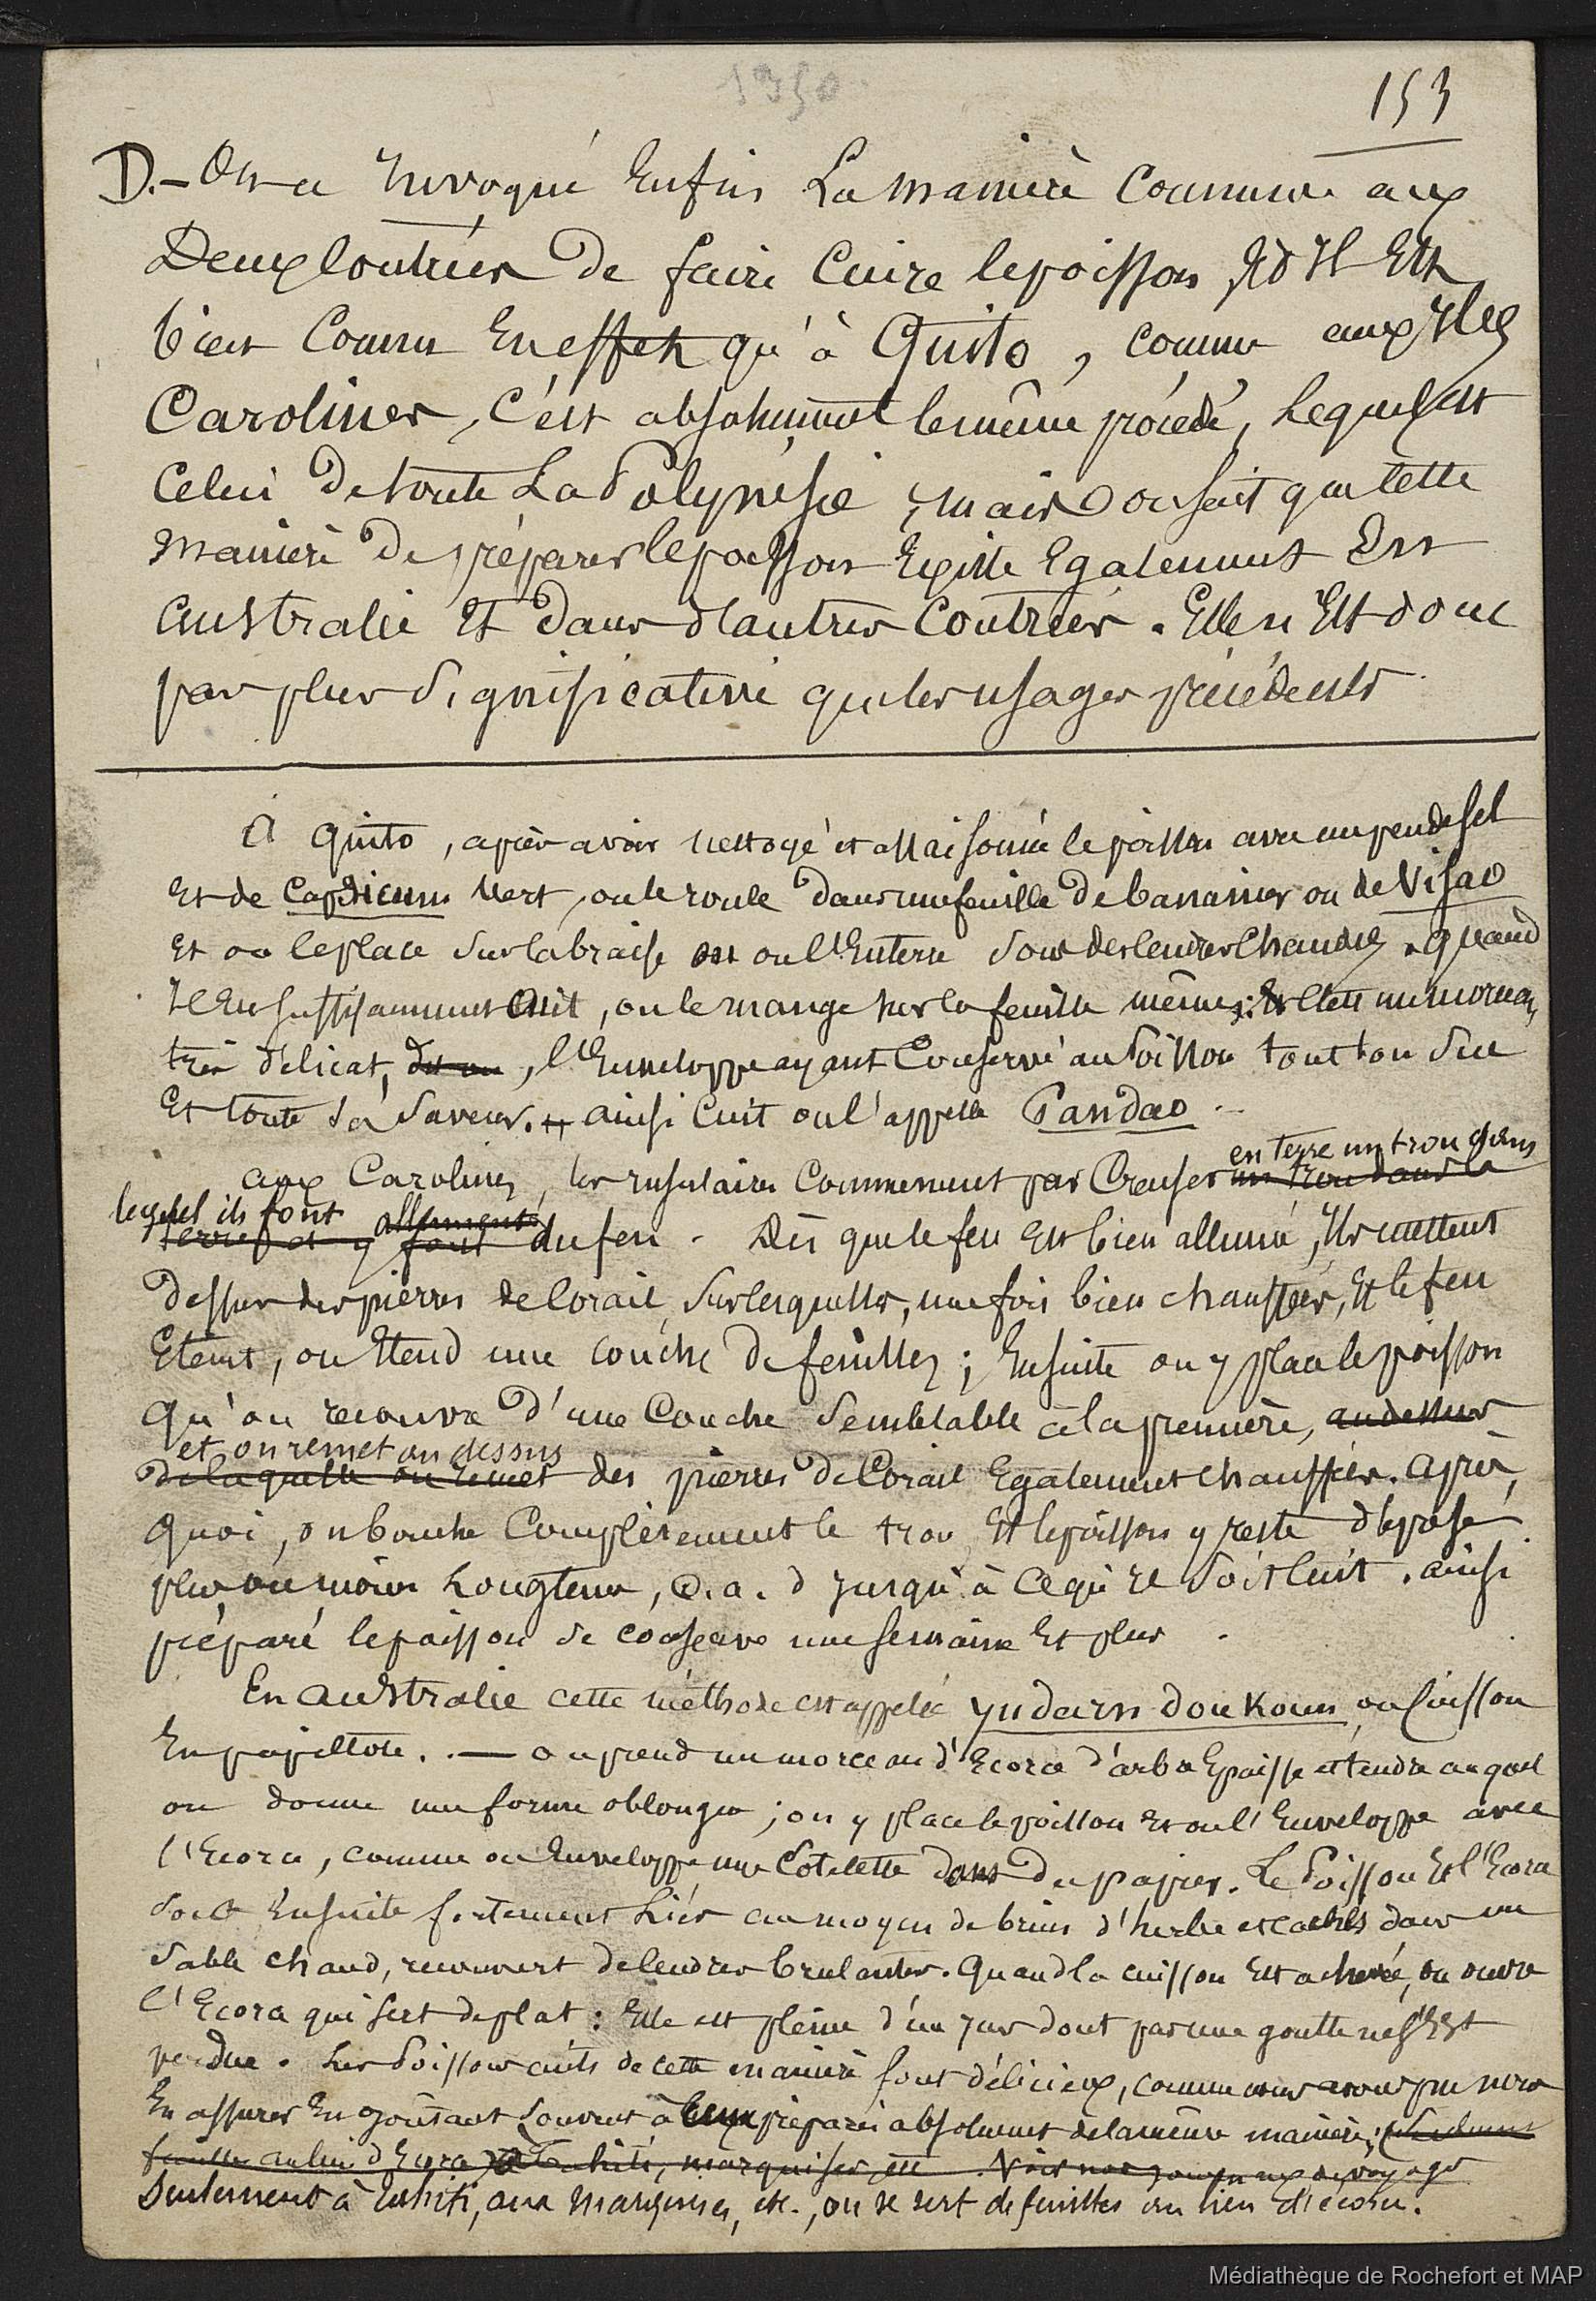 1350
153
D. - On a invoqué Enfin La manière Commune aux
Deux Contrées de faire Cuire le poisson Il Est
bien Connu En effet qu'à Quito, comme aux Iles
Carolines, C'est absolument le même procédé, Lequel est
Celui De toute La Polynésie ; mais on sait que cette
manière De préparer le poisson Existe Egalement En
Australie Et dans d'autres Contrées. Elle n'Est donc
pas plus Significative que les usages précédents
À Quito, après avoir nettoyé et assaisonné le poisson avec un peu de sel
Et de Capsicum Vert, on le roule Dans une feuille De bananier ou de Visao
Et on le place Sur la braise ou on l'Enterre Sous des Cendres Chaudes. Quand
Il Est suffisamment Cuit, on le mange sur la feuille même : C'est un morceau
très délicat, l'Enveloppe ayant Conservé au Poisson tout son Suc
Et toute Sa Saveur. Ainsi Cuit on l'appelle Pandao.
en terre un trou dans
aux Carolines, les insulaires Commencent par Creuser un trou dans la
lequel ils font
allument
terre et y font du feu. Dès que le feu Est bien allumé, Ils mettent
Dessus des pierres de Corail, Sur lesquelles, une fois bien chauffées, Et le feu
Eteint, on Etend une couche De feuilles ; Ensuite on y place le poisson
Qu'on recouvre D'une Couche Semblable à la première, au dessus
et on remet au dessus
De laquelle on remet des pierres De Corail Egalement chauffées. Après
quoi, on bouche Complètement le trou Et le poisson y reste déposé
plus ou moins Longtems, c. a. d jusqu'à Ce qu'il Soit Cuit. Ainsi
préparé le poisson se conserve une Semaine Et plus.
En Australie cette méthode est appelée yudarn doukoun ou Cuisson
En papillote. . — On prend un morceau d'Ecorce d'arbre Epaisse et tendre auquel
on donne une forme oblongue ; on y place le poisson Et on l'Enveloppe avec
l'Ecorce, comme on Enveloppe une Cotelette dans Du papier. Le Poisson Et l'Ecorce
Sont Ensuite fortement Liés au moyen de brins d'herbe et cachés dans un
Sable chaud, recouvert de Cendres brulantes. Quand la cuisson Est achevée, on ouvre
l'Ecorce qui Sert de plat : Elle est pleine d'un jus dont pas une goutte ne s'Est
perdue. Les Poissons cuits de cette manière sont délicieux, comme nous avons pu nous
En assurer En goûtant Souvent à Ceux préparés absolument de la même manière ; Seulement
feuilles au lieu d'Ecorce à Tahiti, marquises, etc. Voir nos journaux de voyage
Seulement à Tahiti, aux Marquises, etc., on se sert de feuilles au lieu d'écorce.
Médiathèque de Rochefort et MAP